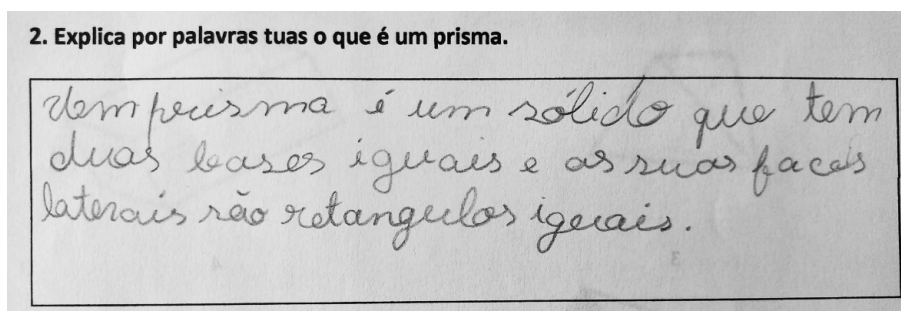 2. Explica por palavras tuas o que é um prisma.
Um prisma é um sólido que tem
duas bases iguais e as suas faces
laterais são retangulos iguais.